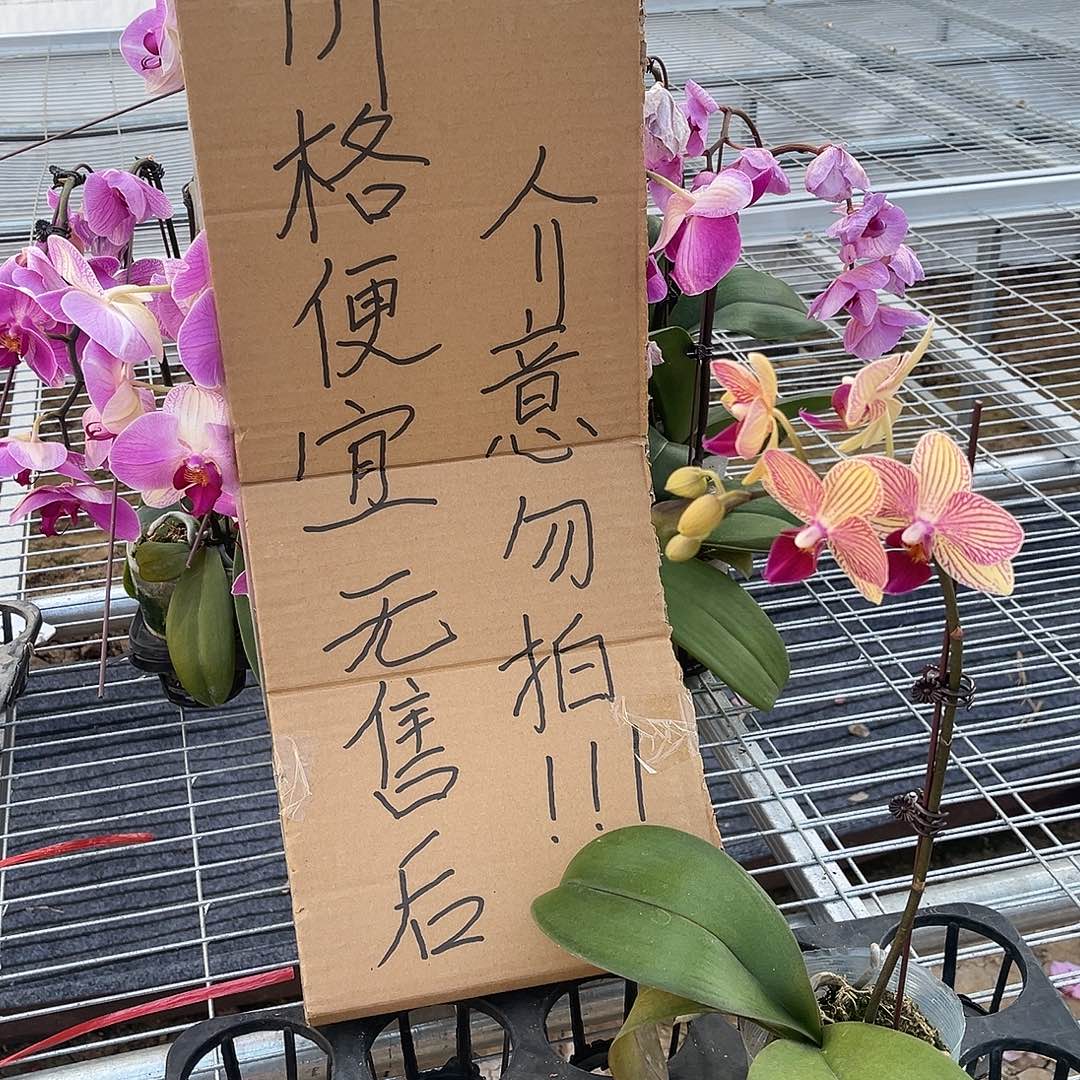 格便宜无售后
介意勿拍!!!